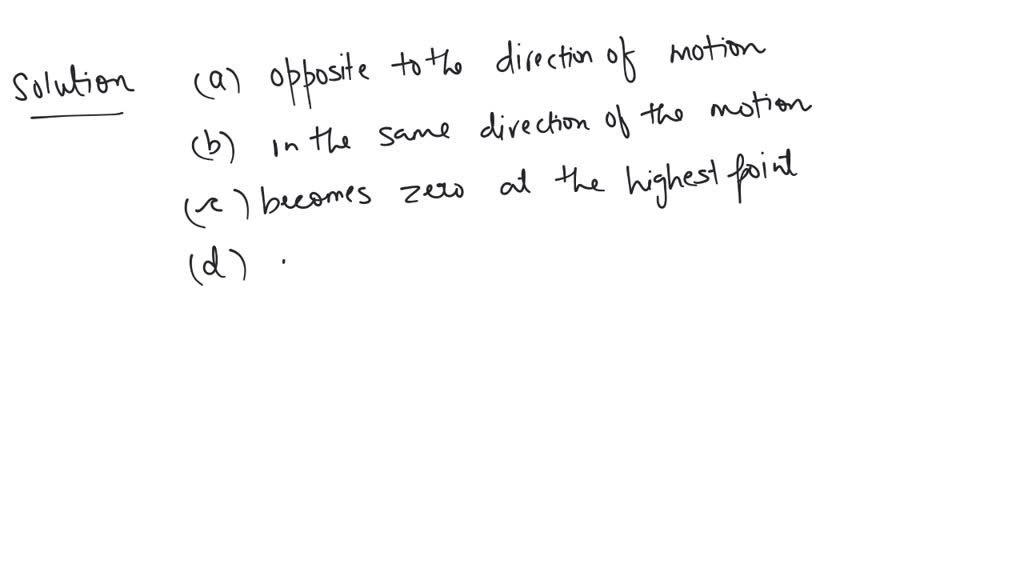 Solution (a) opposite to the direction of motion
(b) in the same direction of the motion
(c) becomes zero at the highest point
(d) .